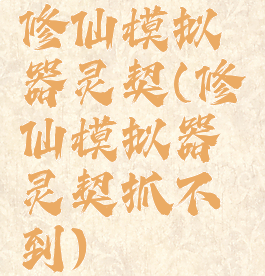 修仙模拟
器灵契(修
仙模拟器
灵契抓不
到)